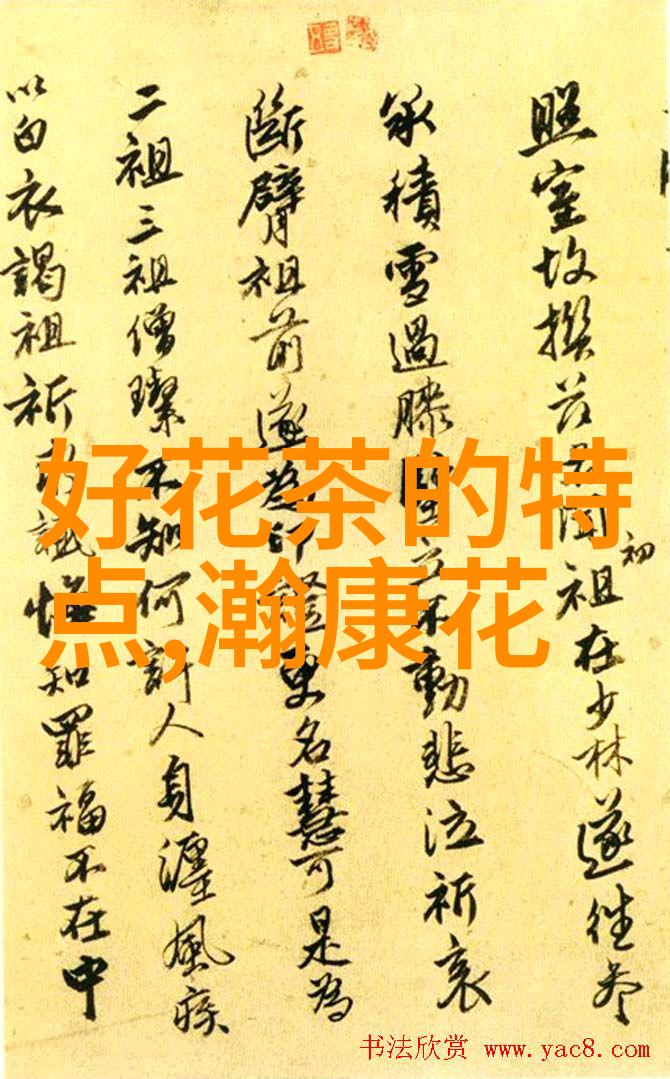 照室故撰
初
祖在少林遂往参
承積雪過膝
不動悲泣祈哀
斷臂祖前遂為印證更名慧可是為
二祖三祖僧璨不知何許人身纏風疾
以白衣謁祖祈
知罪福不在中
好花茶的特
点,瀚康花
书法欣赏 www.yac8.com